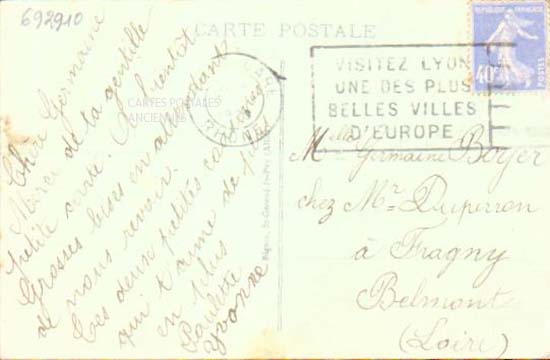 692910
CARTE POSTALE
Chère Germaine
Merci de la gentille
petite carte. A bientôt
Grosses bises en attendant
de nous revoir.
Ces deux petites
qui t'aime de
en plus
Paulette
Yvonne
CARTES POSTALES
ANCIENNES
RHONE
VISITEZ LYON
UNE DES PLUS
BELLES VILLES
D'EUROPE
REPUBLIQUE FRANÇAISE
40c
POSTES
Melle Germaine Boyer
chez Mr Duperron
à Fragny
Belmont
(Loire)